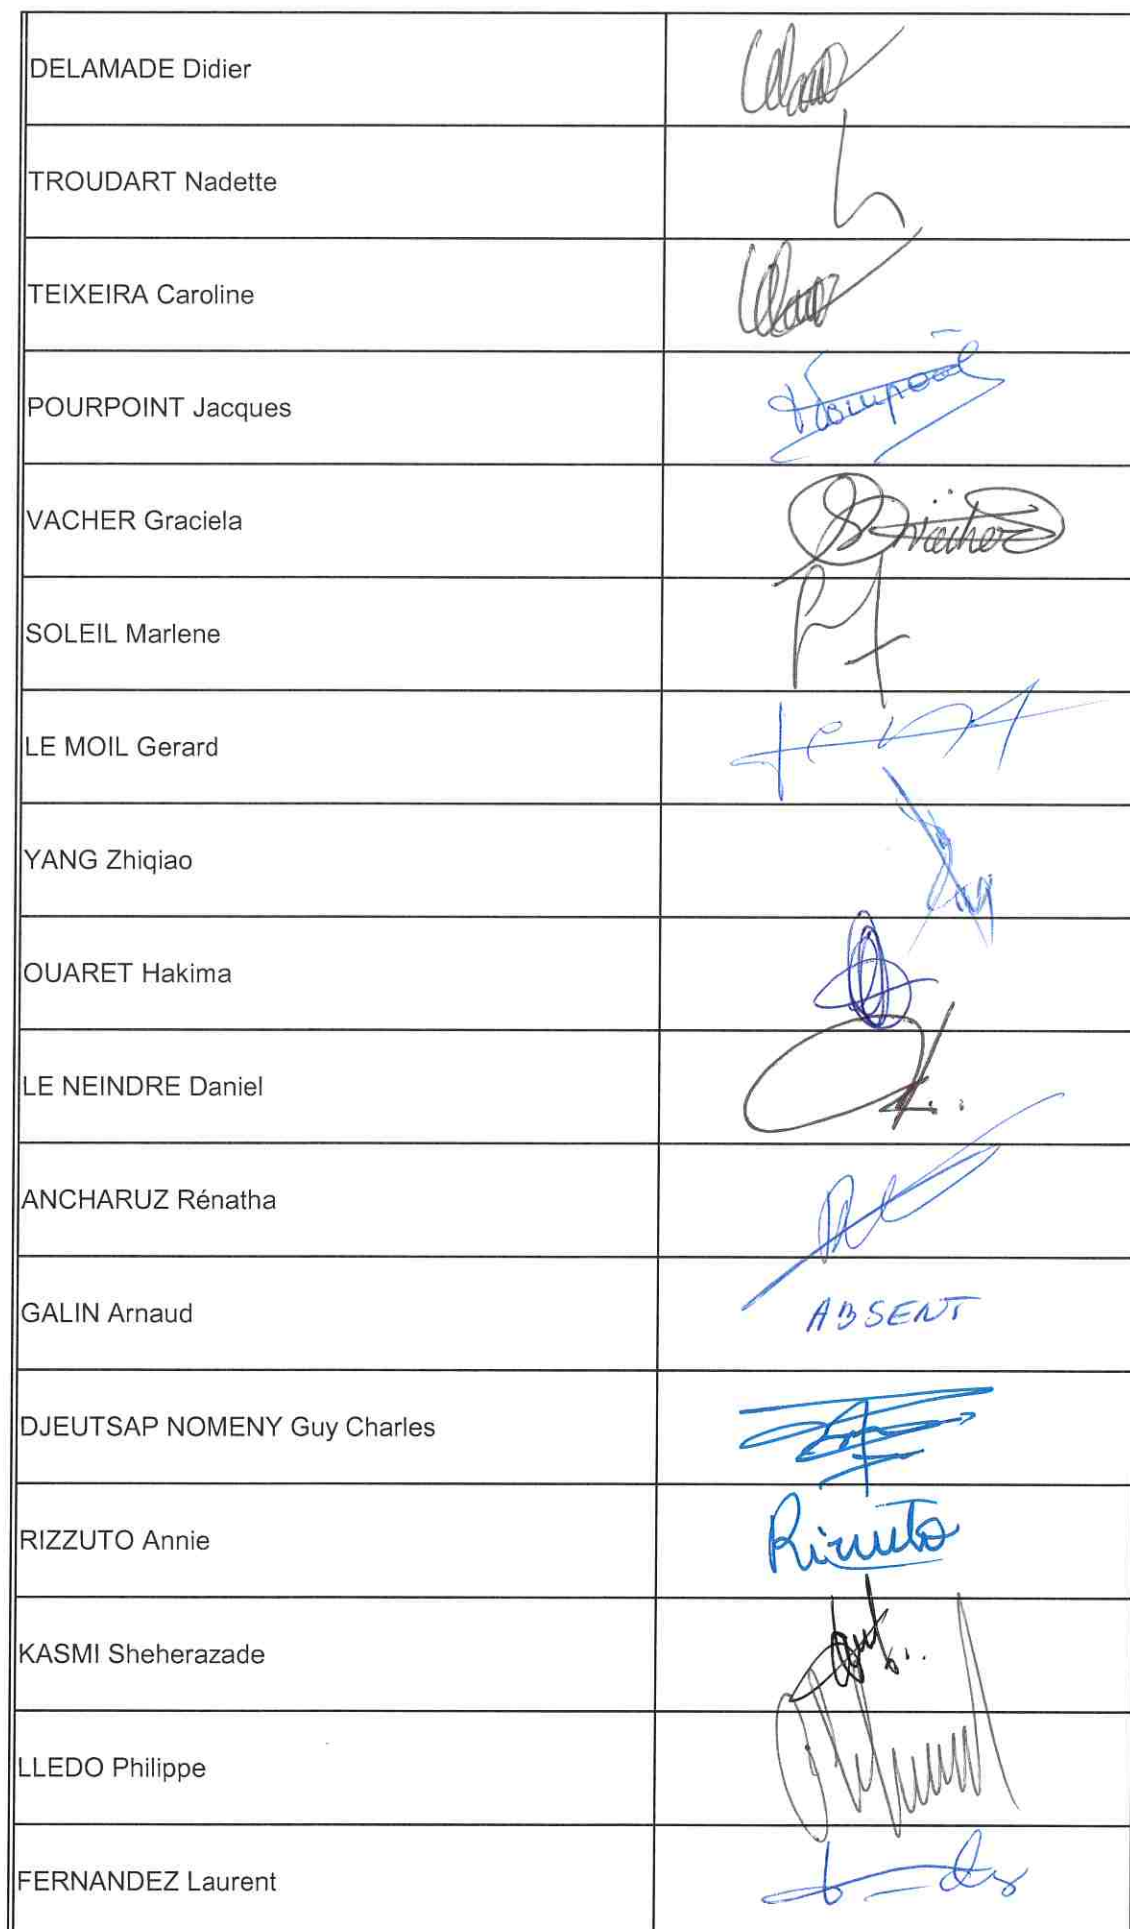 DELAMADE Didier
TROUDART Nadette
TEIXEIRA Caroline
POURPOINT Jacques
VACHER Graciela
SOLEIL Marlene
LE MOIL Gerard
YANG Zhiqiao
OUARET Hakima
LE NEINDRE Daniel
ANCHARUZ Rénatha
GALIN Arnaud ABSENT
DJEUTSAP NOMENY Guy Charles
RIZZUTO Annie Rizzuto
KASMI Sheherazade
LLEDO Philippe
FERNANDEZ Laurent